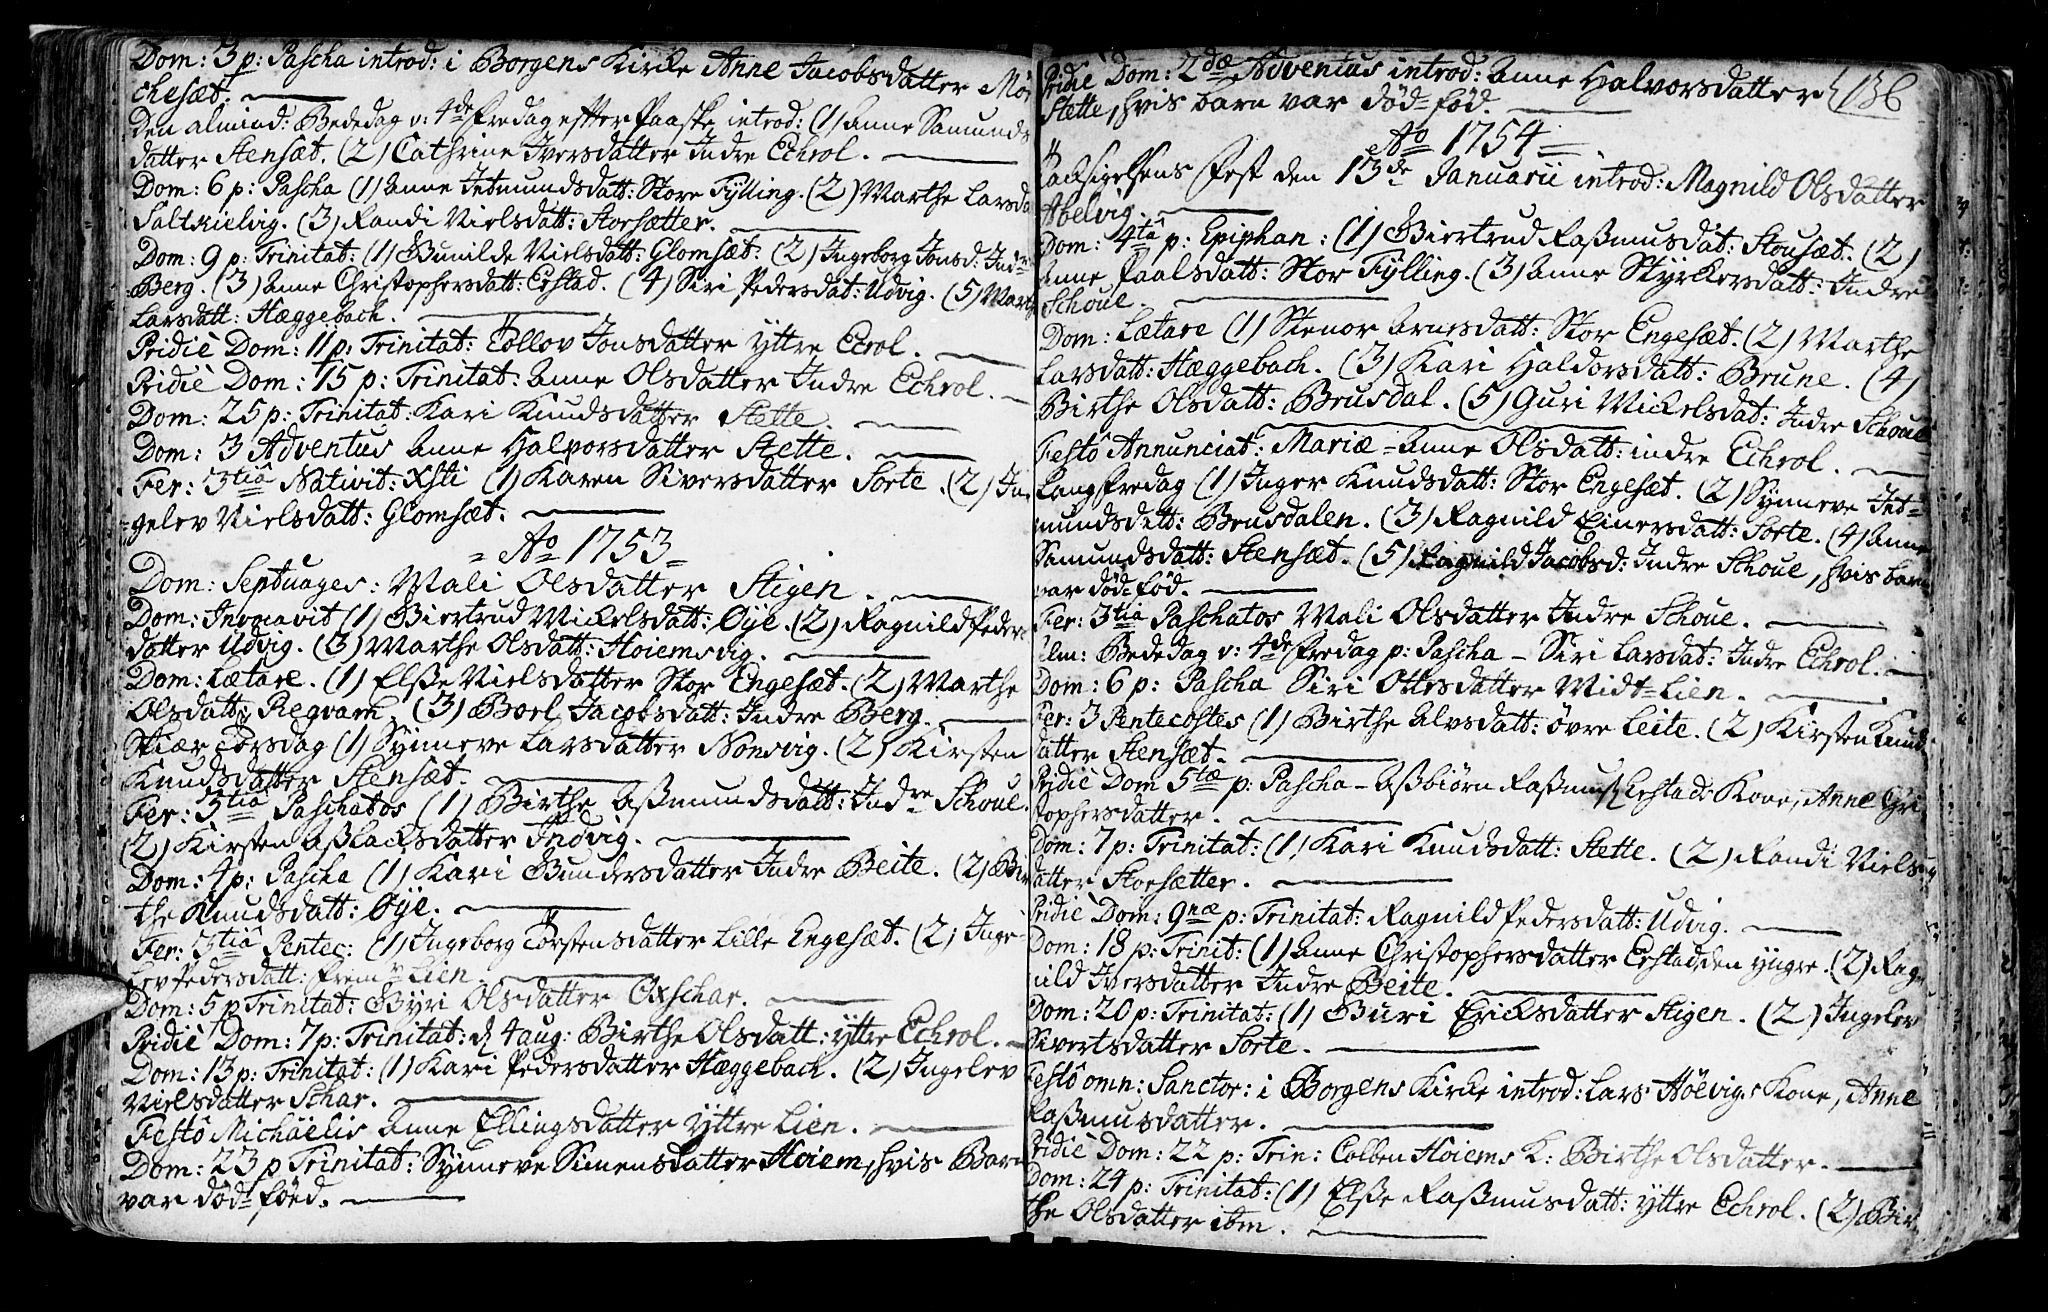 Dom: 3 p: Pascha introd: i Borgens Kirke Anne Jacobsdatter Mør
chesæt.
Den almind: Bededag v: 4de Fredag efter Paaske introd: (1) Anne Samunds
datter Stensæt. (2) Cathrine Iversdatter Indre Echrol.
Dom: 6 p: Pascha (1) Anne Jetmundsdatt: Store Fylling. (2) Marthe Larsda
Saltkielvig. (3) Randi Nielsdatt: Storsætter.
Dom: 9 p: Trinitat: (1) Gunilde Nielsdatt: Glomsæt. (2) Ingeborg Jonsd: Indre
Berg. (3) Anne Christophersdatt: Erstad. (4) Siri Pedersdat: Udvig. (5) Marthe
Larsdatt: Hæggebach.
Pridie Dom: 11 p: Trinitat: Tollov Jonsdatter Yttre Ecrol.
Pridie Dom: 15 p: Trinitat: Anne Olsdatter Indre Echrol.
Dom: 25 p: Trinitat: Kari Knudsdatter Stette.
Dom: 3 Adventus Anne Halvorsdatter Stette.
Fer: 3tiâ Nativit: Xsti (1) Karen Siversdatter Sorte. (2) In-
gelev Nielsdatt: Glomsæt.
= Ao 1753 =
Dom: Septuages: Mali Olsdatter Stigen.
Dom: Invocavit (1) Giertrud Mickelsdatt: Øye. (2) Ragnild Peders
datter Udvig. (3) Marthe Olsdatt: Hoiemsvig.
Dom: Lætare. (1) Elsße Nielsdatter Stor Engesæt. (2) Marthe
Olsdatt: Regvam. (3) Boel Jacobsdatt: Indre Berg.
Skiær Torsdag (1) Synneve Larsdatter Nonsvig. (2) Kirsten
Knudsdatter Stensæt.
Fer: 3tiâ Paschatos (1) Birthe Aßmundsdatt: Indre Schoue.
(2) Kirsten Aßlacksdatter Indvig.
Dom: 4 p: Pascha (1) Kari Gundersdatter Indre Beite. (2) Bir
the Knudsdatt: Øye.
Fer: 3tiâ Pentec: (1) Ingeborg Torstensdatter Lille Engesæt. (2) Inge-
lev Pedersdatt: Frem Lien.
Dom: 5 p Trinitat: Gyri Olsdatter Oxschar.
Pridie Dom: 7 p: Trinitat: d 4 aug: Birthe Olsdatt: yttre Echrol.
Dom: 13 p: Trinitat: (1) Kari Pedersdatter Hæggebach. (2) Ingelev
Nielsdatter Schar.
Festô Michaëlis Anne Ellingsdatter Yttre Lien.
Dom: 23 p Trinitat: Synneve Simensdatter Hoiem, hvis Barn
var död-föed.
Pridie Dom: 2dæ Adventus introd: Anne Halvorsdatter 136
Stette, hvis barn var död-föd.
Ao 1754
Tacksigelsens Fest den 13de Januarii introd: Magnild Olsdatter
Abelvig.
Dom: 4tâ p: Epiphan: (1) Giertrud Raßmusdat: Stousæt. (2)
Anne Paalsdatt: Stor Fylling. (3) Anne Styrkersdatt: Indre
Schoue.
Dom: Lætare (1) Stenor Arnesdatt: Stor Engesæt. (2) Marthe
Larsdatt: Hæggebach. (3) Kari Haldorsdatt: Brune. (4)
Birthe Olsdatt: Brusdal. (5) Guri Mickelsdat: Indre Schoue
Festô Annunciat: Mariæ - Anne Olsdatt: indre Echrol.
Langfredag (1) Inger Knudsdatt: Stor Engesæt. (2) Synneve Jet-
mundsdatt: Brusdalen. (3) Ragnild Einersdatt: Sorte. (4) Anne
Samundsdatt: Stensæt. (5) Ragnild Jacobsd: Indre Schoue, hvis barn
var död-föd.
Fer: 3tiâ Paschatos Mali Olsdatter Indre Schoue.
Alm: Bededag v: 4de Fredag p: Pascha - Siri Larsdat: Indre Echrol.
Dom: 6 p: Pascha Siri Ottesdatter Midt-Lien.
Fer: 3 Pentecostes (1) Birthe Alvsdatt: övre Leite. (2) Kirsten Knuds
datter Stensæt.
Pridie Dom 5tæ p: Pascha - Aßbiörn Raßmuss: Erstads Kone, Anne Chri
stophersdatter.
Dom: 7 p: Trinitat: (1) Kari Knudsdatt: Stette. (2) Randi Niels-
datter Storsætter.
Pridie Dom: 9næ p: Trinitat: Ragnild Pedersdatt: Udvig.
Dom: 18 p: Trinit: (1) Anne Christophersdatter Erstad, den yngre. (2) Rag-
nild Iversdatter Indre Beite.
Dom: 20 p: Trinitat: (1) Guri Ericksdatter Stigen. (2) Ingelev
Sivertsdatter Sorte.
Festô omn: Sanctor: i Borgens Kirke introd: Lars Höevigs Kone, Anne
Raßmusdatter.
Pridie Dom: 22 p: Trin: Colben Hoiems K: Birthe Olsdatter.
Dom: 24 p: Trinitat: (1) Elße Raßmusdatt: yttre Echrol. (2) Bir-
the Olsdatter ibm.